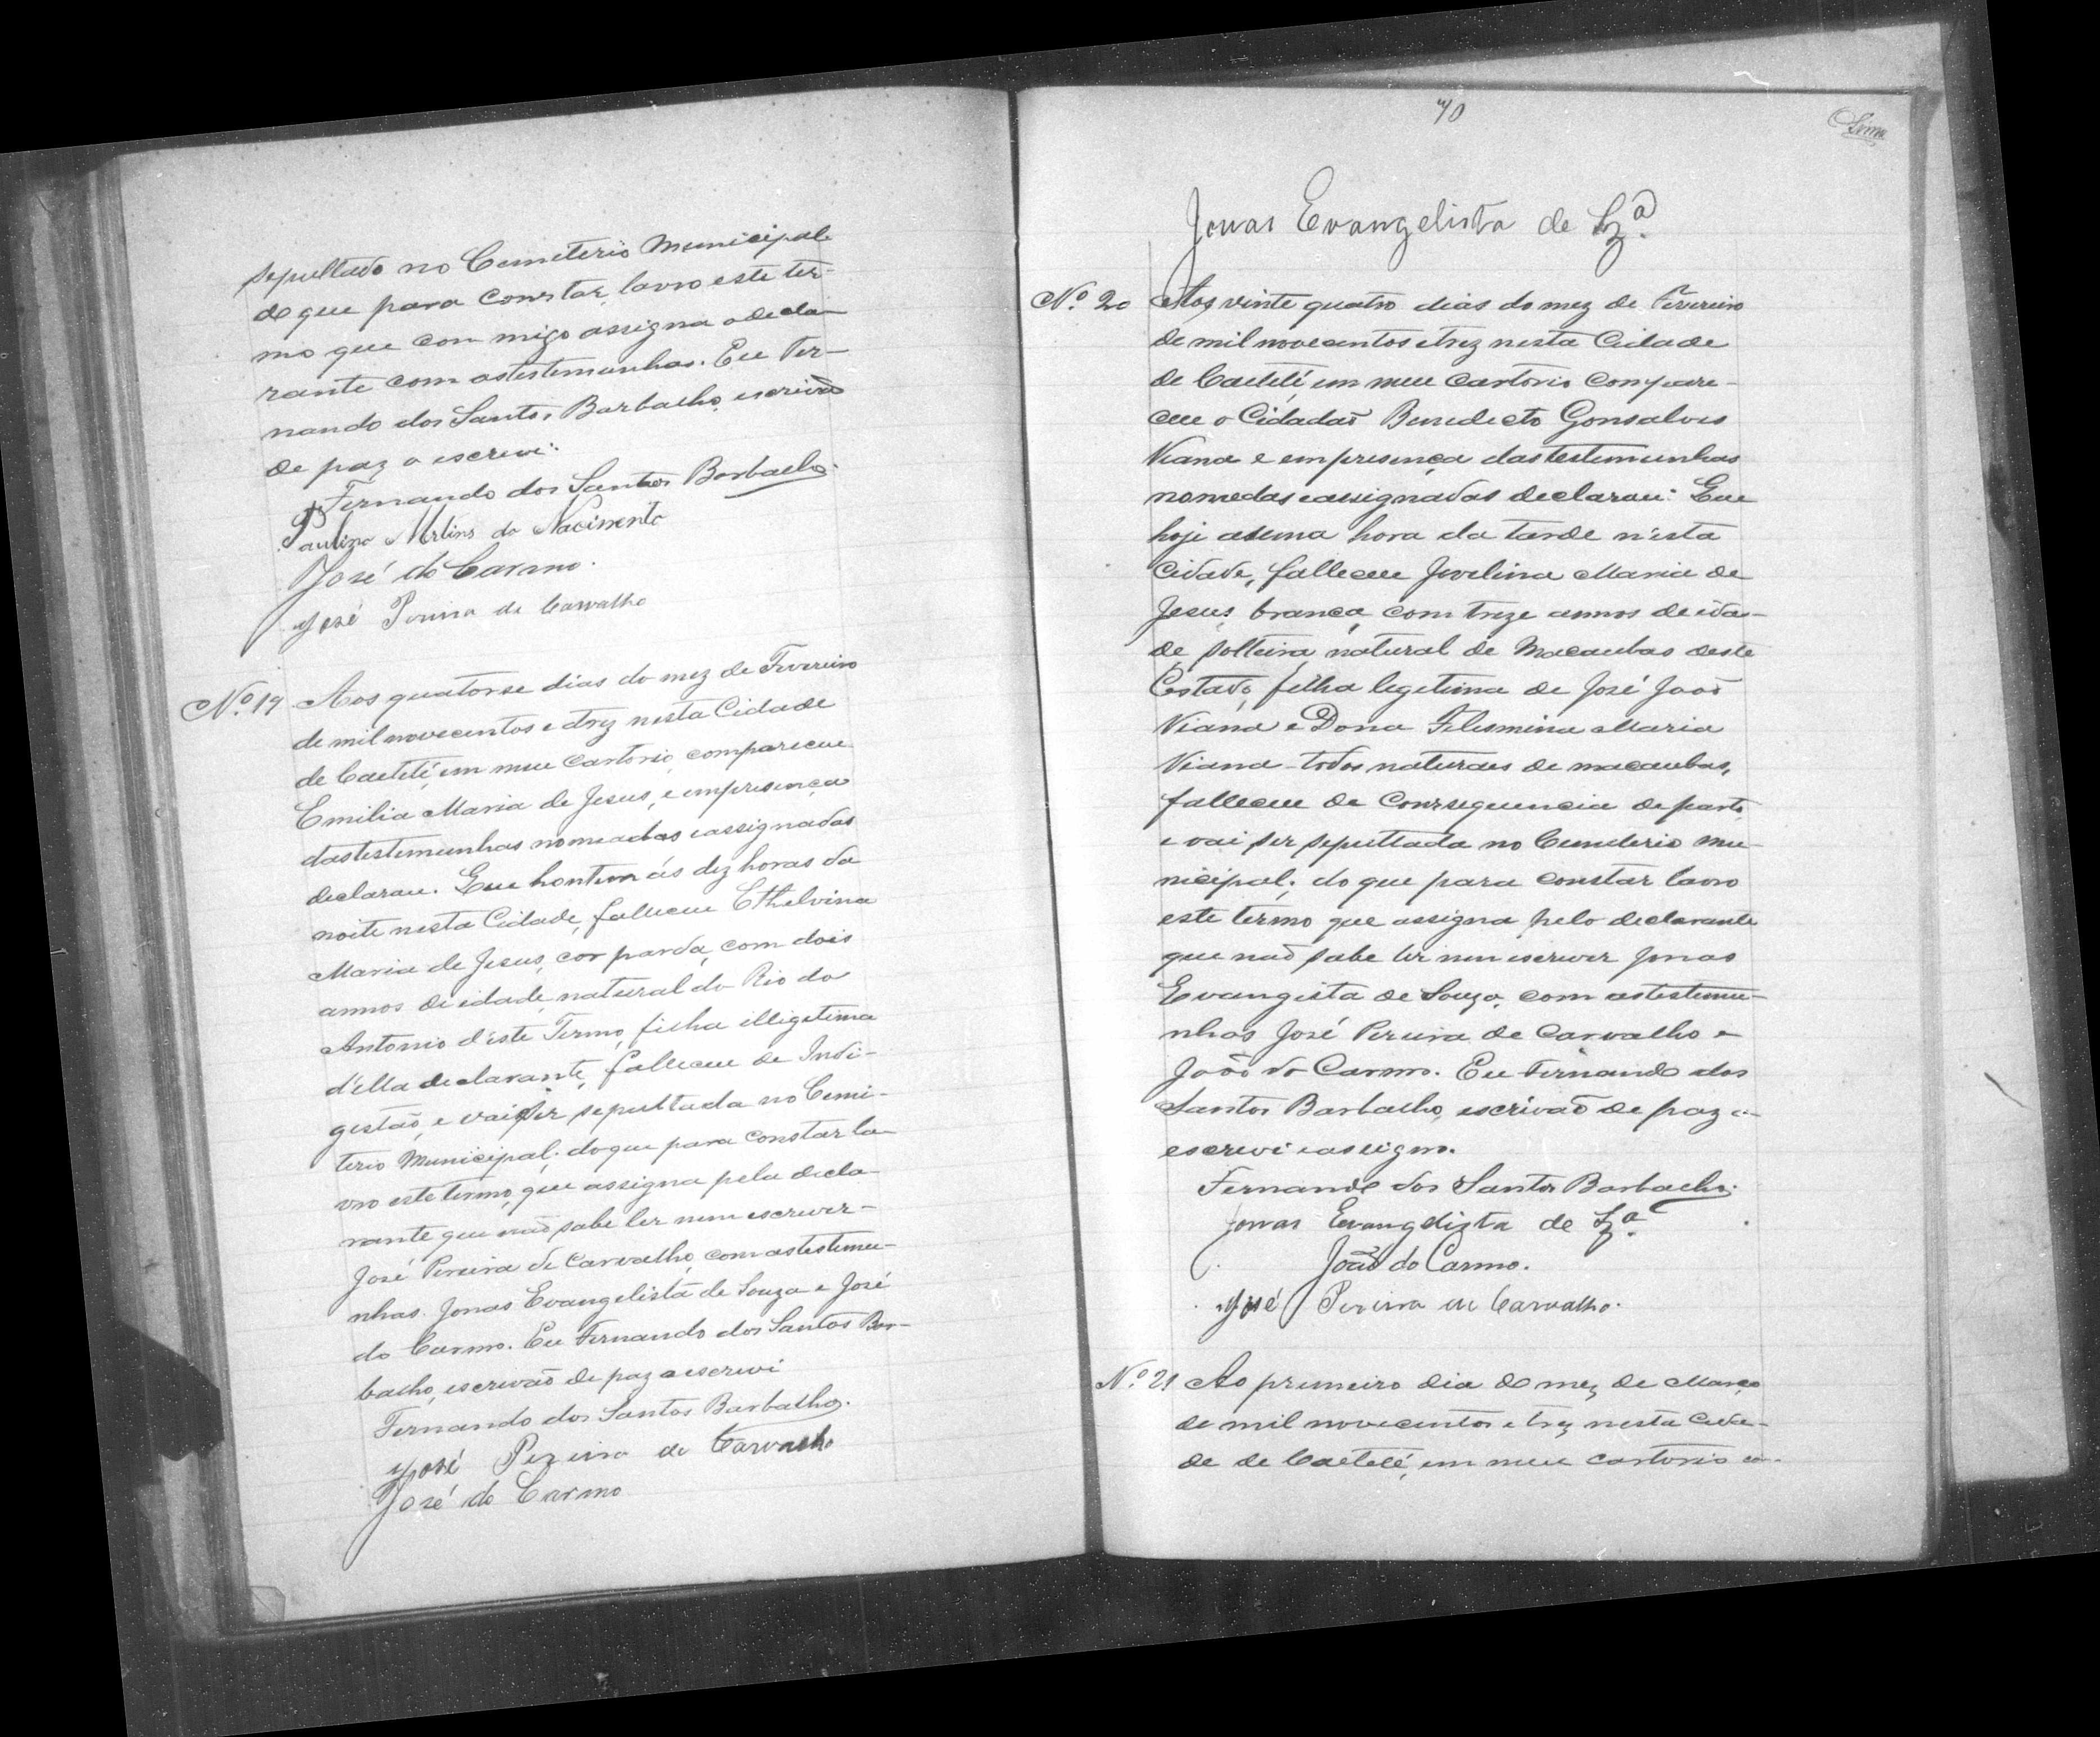 sepultado no Cemeterio Municipal
do que para constar, lavro este ter-
mo que com migo assigna o decla-
rante com as testemunhas. Eu Fer-
nando dos Santos Barbalho, escrivão
de paz o escrevi.
Fernando dos Santos Barbalho.
Paulino Mrtins do Nacimento
José do Carmo.
José Pereira de Carvalho
No. 19 Aos quatorse dias do mez de Fevereiro
de mil novecentos e trez nesta Cidade
de Caeteté, em meu Cartorio, compareceu
Emilia Maria de Jesus, e em presença
das testemunhas nomeadas e assignadas
declarou. Que hontem ás dez horas da
noite nesta Cidade, falleceu Ethelvina
Maria de Jesus, cor parda, com dois
annos de idade, natural do Rio do
Antonio d'este Termo, filha illigetima
d'ella declarante, falleceu de Indi-
gestão, e vai ser sepultada no Cemi-
terio Municipal; do que para constar la-
vro este termo, que assigna pela decla-
rante que não sabe ler nem escrever-
José Pereira de Carvalho, com as testemu-
nhas Jonas Evangelista de Souza e José
do Carmo. Eu Fernando dos Santos Bar-
balho, escrivão de paz o escrevi
Fernando dos Santos Barbalho.
José Pereira de Carvalho
José do Carmo
70
Lima
Jonas Evangelista de Sz.a
No. 20 Aos vinte quatro dias do mez de Fevereiro
de mil novecentos e trez nesta Cidade
de Caeteté, em meu Cartorio compare-
ceu o Cidadão Benedicto Gonsalves
Viana e em presença das testemunhas
nomedas e assignadas declarou: Que
hoje a uma hora da tarde n'esta
Cidade, falleceu Jovelina Maria de
Jesus, branca, com treze annos de ida-
de, solteira, natural de Macaubas deste
Estado, filha legetima de José João
Viana e Dona Felismina Maria
Viana - todos naturaes de macaubas,
falleceu de Consequencia de parto,
e vai ser sepultada no Cemeterio mu-
nicipal; do que para constar lavro
este termo que assigna pelo declarante
que não sabe ler nem escrever Jonas
Evangista de Souza, com as testemu-
nhas José Pereira de Carvalho e
João do Carmo. Eu Fernando dos
Santos Barbalho, escrivão de paz o
escrevi e assigno.
Fernando dos Santos Barbalho.
Jonas Evangelista de Sz.a
João do Carmo.
José Pereira de Carvalho.
No. 21 Ao primeiro dia do mez de Março
de mil novecentos e trez nesta Cida-
de de Caeteté, em meu cartorio co-